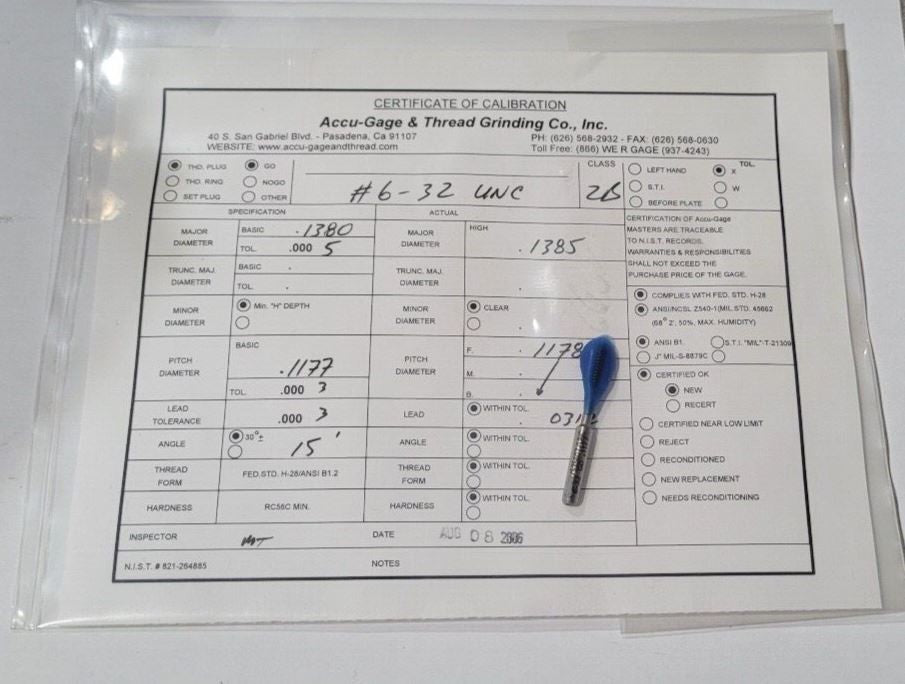 CERTIFICATE OF CALIBRATION
Accu-Gage & Thread Grinding Co., Inc.
40 S. San Gabriel Blvd. - Pasadena, Ca 91107
PH: (626) 568-2932 - FAX: (626) 568-0630
WEBSITE: www.accu-gageandthread.com
Toll Free: (866) WE R GAGE (937-4243)
THD. PLUG GO
THD. RING NOGO
SET PLUG OTHER
#6-32 UNC
CLASS
2B
LEFT HAND
S.T.I.
BEFORE PLATE
TOL.
X
W
SPECIFICATION
ACTUAL
MAJOR DIAMETER
BASIC .1380
TOL. .000 5
MAJOR DIAMETER
HIGH
.1385
TRUNC. MAJ. DIAMETER
BASIC .
TOL. .
TRUNC. MAJ. DIAMETER
.
MINOR DIAMETER
Min. "H" DEPTH
MINOR DIAMETER
CLEAR
.
PITCH DIAMETER
BASIC
.1177
TOL. .000 3
PITCH DIAMETER
F. .1178
M. .
B. .
LEAD TOLERANCE
.000 3
LEAD
WITHIN TOL.
ANGLE
30°±
15'
ANGLE
WITHIN TOL.
THREAD FORM
FED.STD. H-28/ANSI B1.2
THREAD FORM
WITHIN TOL.
HARDNESS
RC58C MIN.
HARDNESS
WITHIN TOL.
CERTIFICATION OF Accu-Gage
MASTERS ARE TRACEABLE
TO N.I.S.T. RECORDS.
WARRANTIES & RESPONSIBILITIES
SHALL NOT EXCEED THE
PURCHASE PRICE OF THE GAGE.
COMPLIES WITH FED. STD. H-28
ANSI/NCSL Z540-1(MIL.STD. 45662
(68° 2', 50%, MAX. HUMIDITY)
ANSI B1.
S.T.I. "MIL"-T-21309
"J" MIL-S-8879C
CERTIFIED OK
NEW
RECERT
CERTIFIED NEAR LOW LIMIT
REJECT
RECONDITIONED
NEW REPLACEMENT
NEEDS RECONDITIONING
INSPECTOR
DATE AUG 08 2006
N.I.S.T. # 821-264885
NOTES